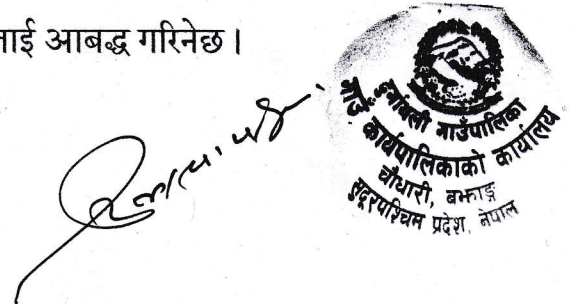 नाई आबद्ध गरिनेछ ।
दुर्गाथली गाउँपालिका
गाउँ कार्यपालिकाको कार्यालय
चौधारी, बझाङ्ग
सुदूरपश्चिम प्रदेश, नेपाल